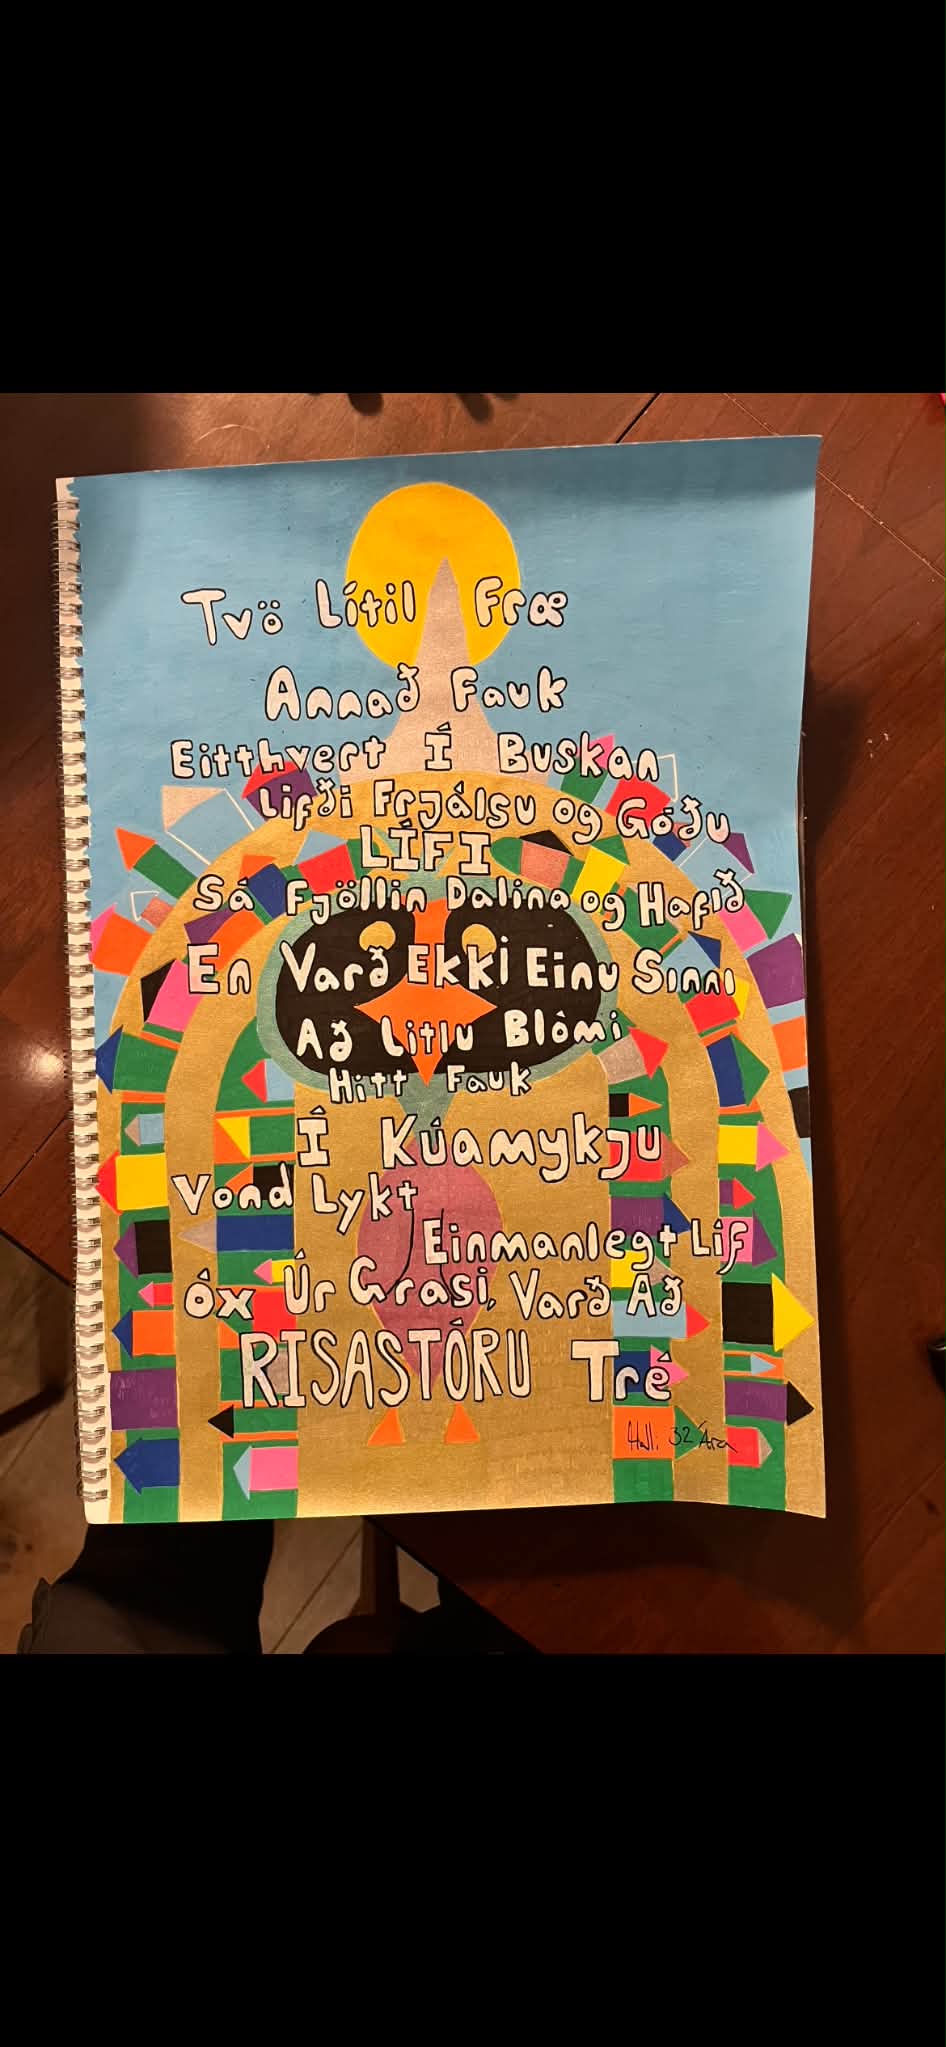 Tvö Lítil Fræ
Annað Fauk
Eitthvert Í Buskan
Lifði Frjálsu og Góðu
LÍFI
Sá Fjöllin Dalina og Hafið
En Varð Ekki Einu Sinni
Að Litlu Blómi
Hitt Fauk
Í Kúamykju
Vond Lykt
Einmanlegt Líf
Óx Úr Grasi, Varð Að
RISASTÓRU Tré
Halli 32 Ára